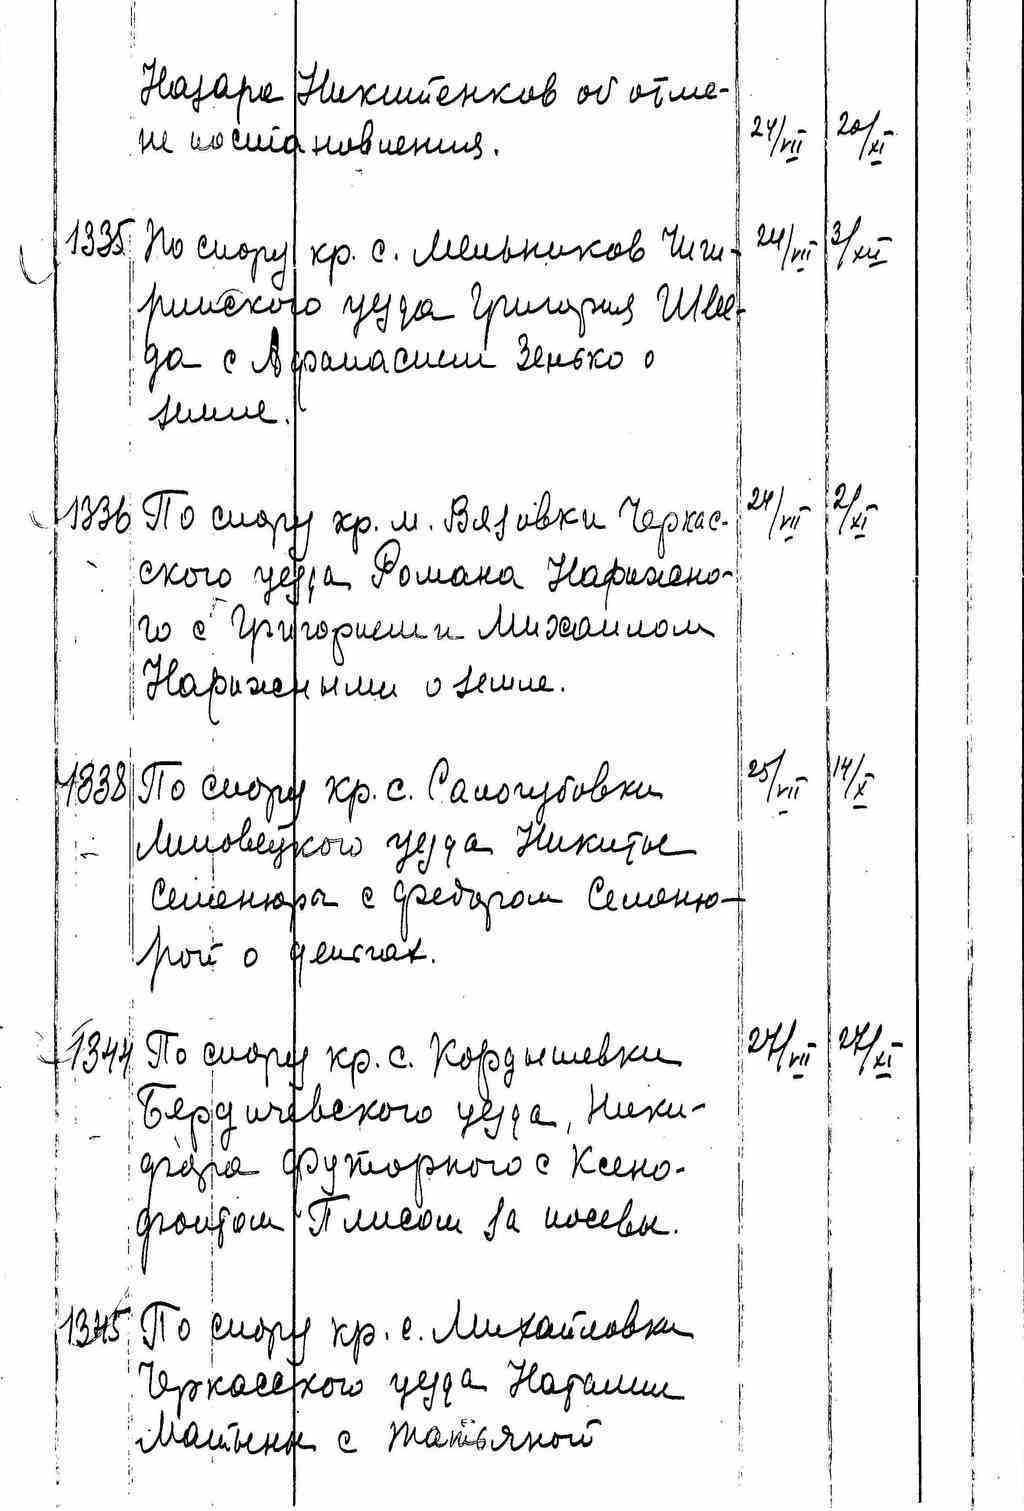 Назара Никитенков об отме-
не постановления. 24/VII 20/XI
1335 По спору кр. с. Мельников Чиги- 24/VII 3/XII
ринского уезда Григория Шве-
да с Афанасием Зенько о
земле.
1336 По спору кр. м. Вязовки Черкас- 24/VII 2/XI
ского уезда Романа Нарижно-
го с Григорием и Михаилом
Нарижными о земле.
1338 По спору кр. с. Салогубовки 25/VII 14/X
Липовецкого уезда Никиты
Семенюры с Федором Семеню-
рой о деньгах.
1344 По спору кр. с. Кордышевки 27/VII 27/XI
Бердичевского уезда, Ники-
фора Футорного с Ксено-
фонтом Плисом за посевы.
1345 По спору кр. с. Михайловки
Черкасского уезда Наталии
с Татьяной